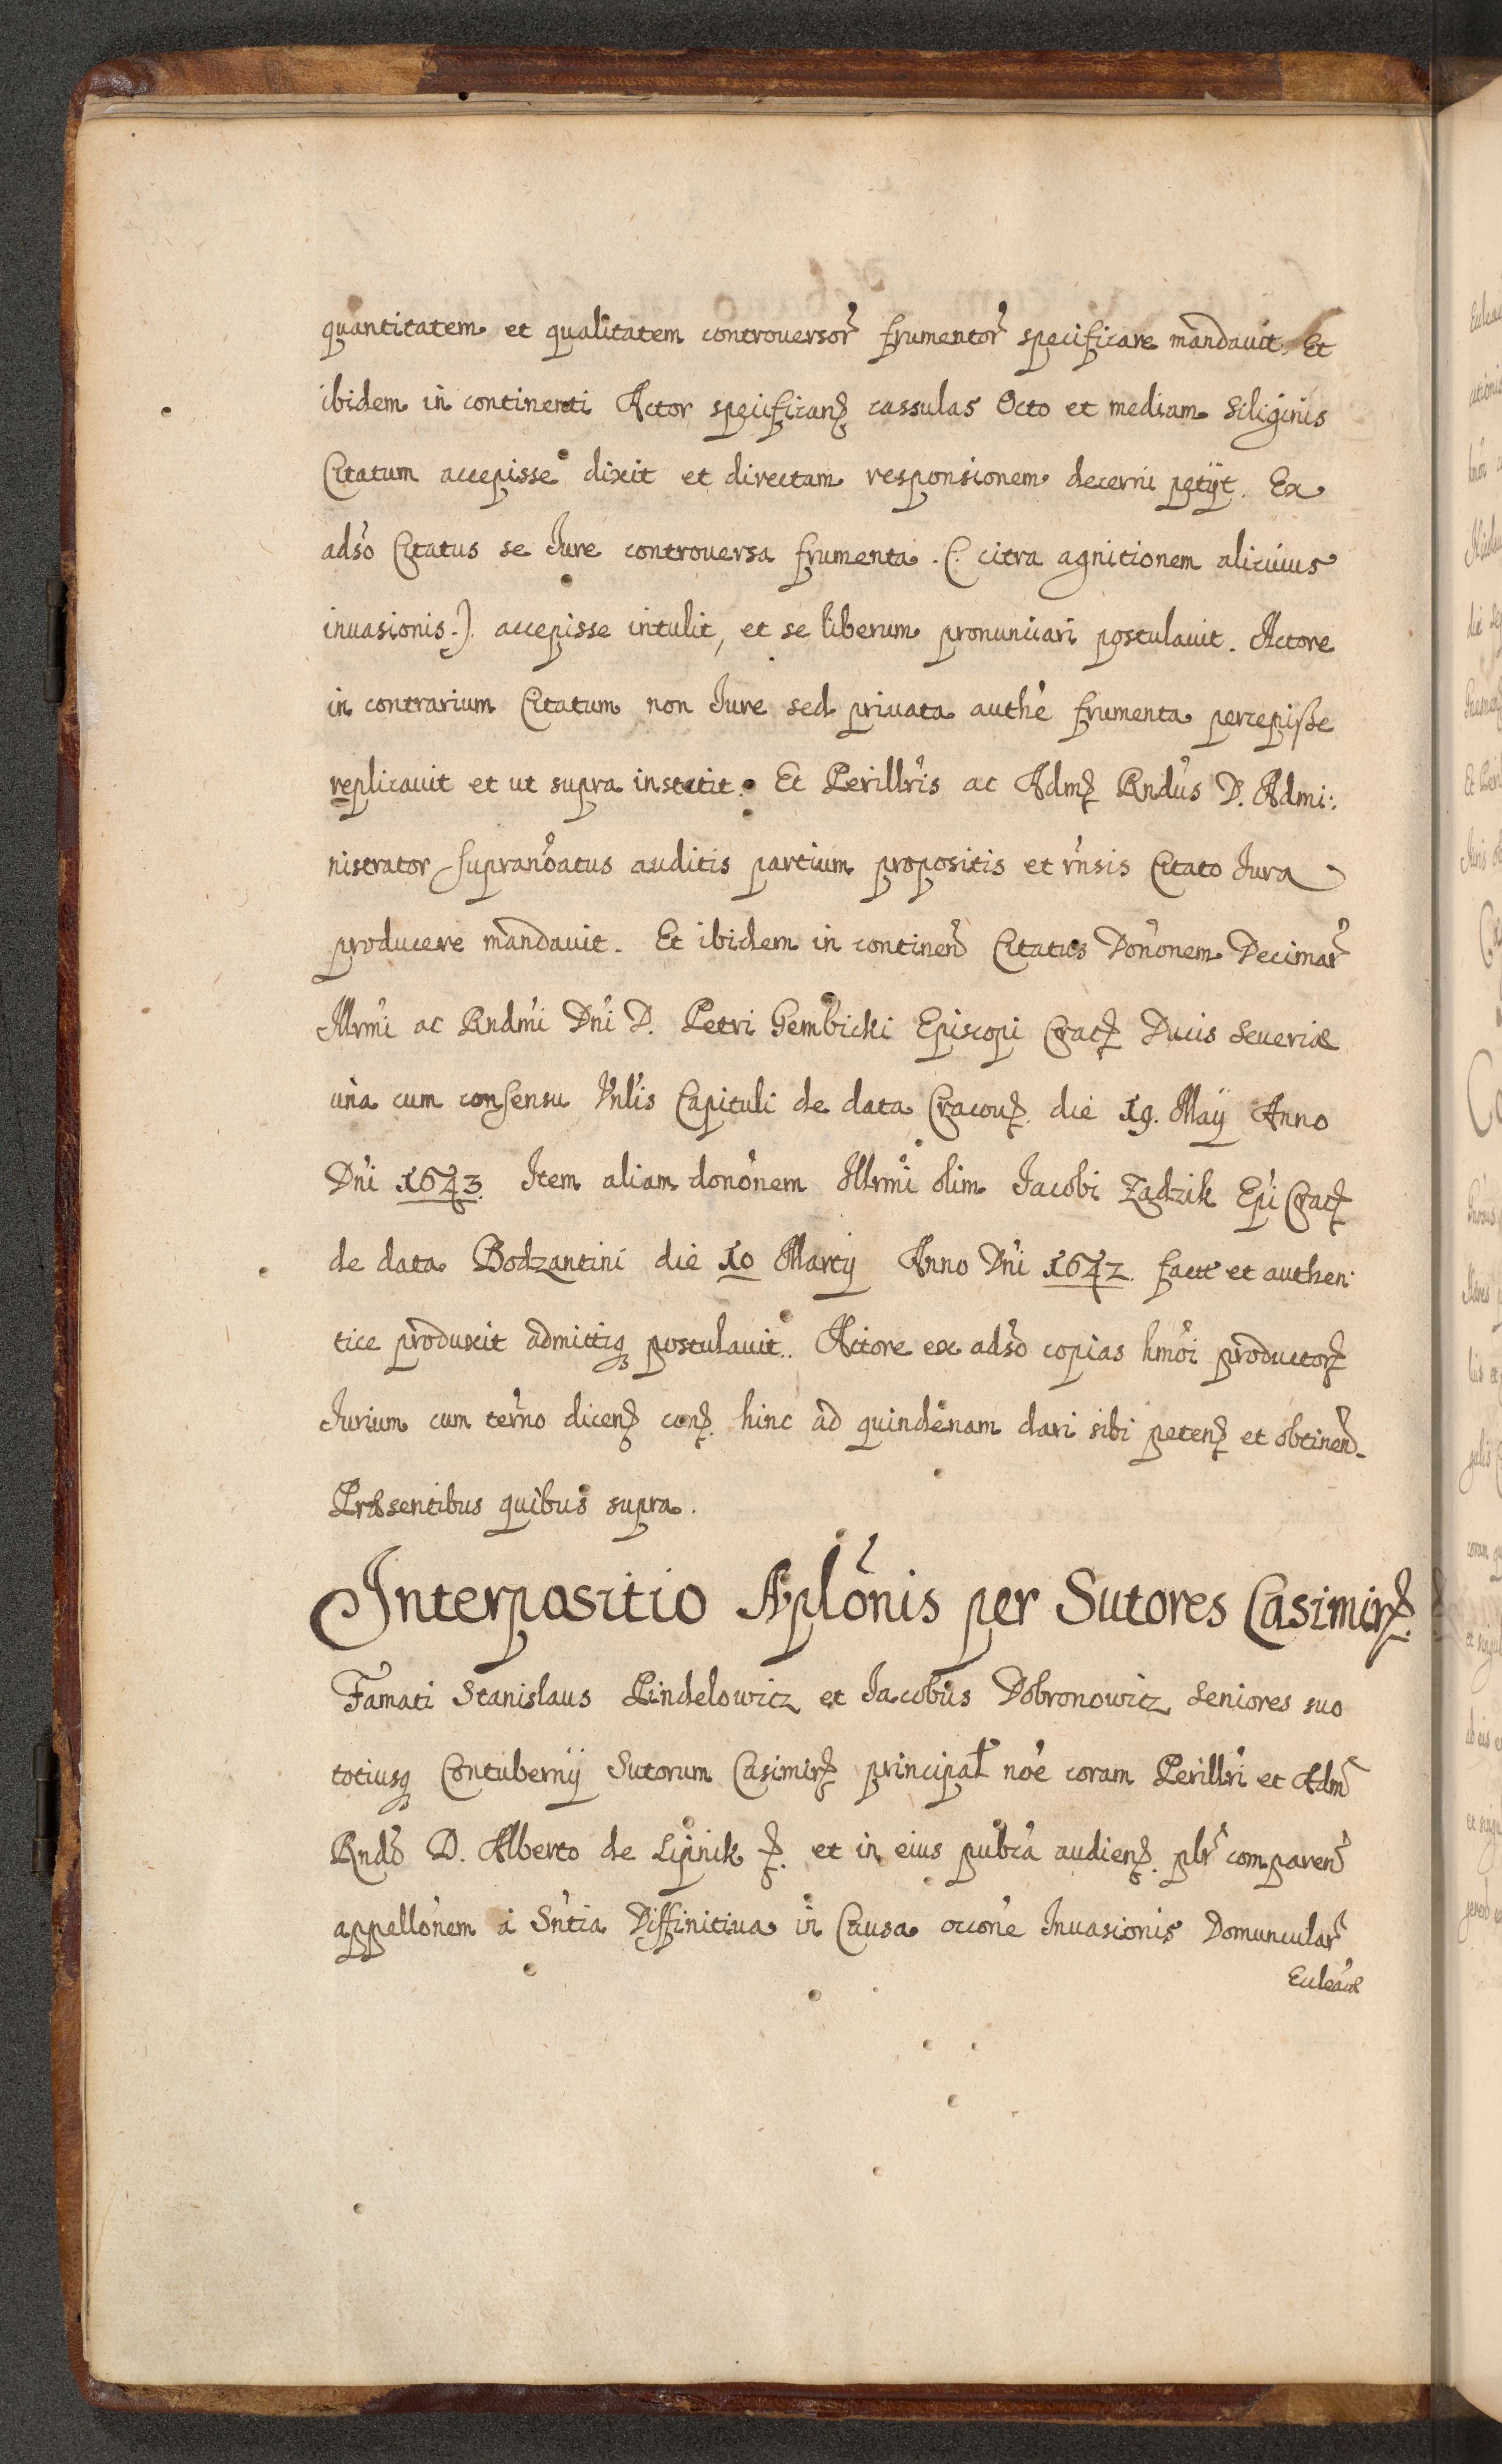 quantitatem et qualitatem controversor̃ frumentor̃ specificare mandavit. Et
ibidem in continenti Actor specificanꝫ cassulas Octo et mediam Siliginis
Citatum accepisse dixit et directam responsionem decerni petijt. Ex
adso Citatus se Jure controversa frumenta .(. citra agnitionem alicuius
invasionis.). accepisse intulit, et se liberum pronunciari postulavit. Actore
in contrarium Citatum non Jure sed privata authe frumenta percepisse
replicavit et ut supra institit. Et Perillris ac Admꝫ Rndus D. Admi:
nistrator supranoatus auditis partium propositis et rnsis Citato Jura
producere mandavit. Et ibidem in continen̄ Citatus Dononem Decimar̃
Illrmi ac Rndmi Dni D. Petri Gembicki Episcopi Cracꝫ Ducis Severiæ
una cum consensu Vnlis Capituli de data Cracovꝫ. die 19. Maij Anno
Dni 1643. Item aliam dononem Illrmi olim Jacobi Zadzik Epi Cracꝫ
de data Bodzantini die 10 Martij Anno Dni 1642. facte et authen
tice produxit admittiqꝫ postulavit. Actore ex adso copias hmoi productorꝫ
Jurium cum termo dicenꝫ conꝫ. hinc ad quindenam dari sibi petenꝫ et obtinen̄.
Præsentibus quibus supra.
Interpositio Aplonis per Sutores Casimirꝫ.
Famati Stanislaus Pindelowicz et Jacobus Dobronowicz Seniores suo
totiusqꝫ Contubernij Sutorum Casimirꝫ principał noe coram Perillri et Adm̃
Rndo D. Alberto de Lipnik ꝫ. et in eius publca audienꝫ. plr̃ comparen̄
appellonem a Sntia Diffinitiva in Causa occone Invasionis Domuncular̃
Eccleacæ